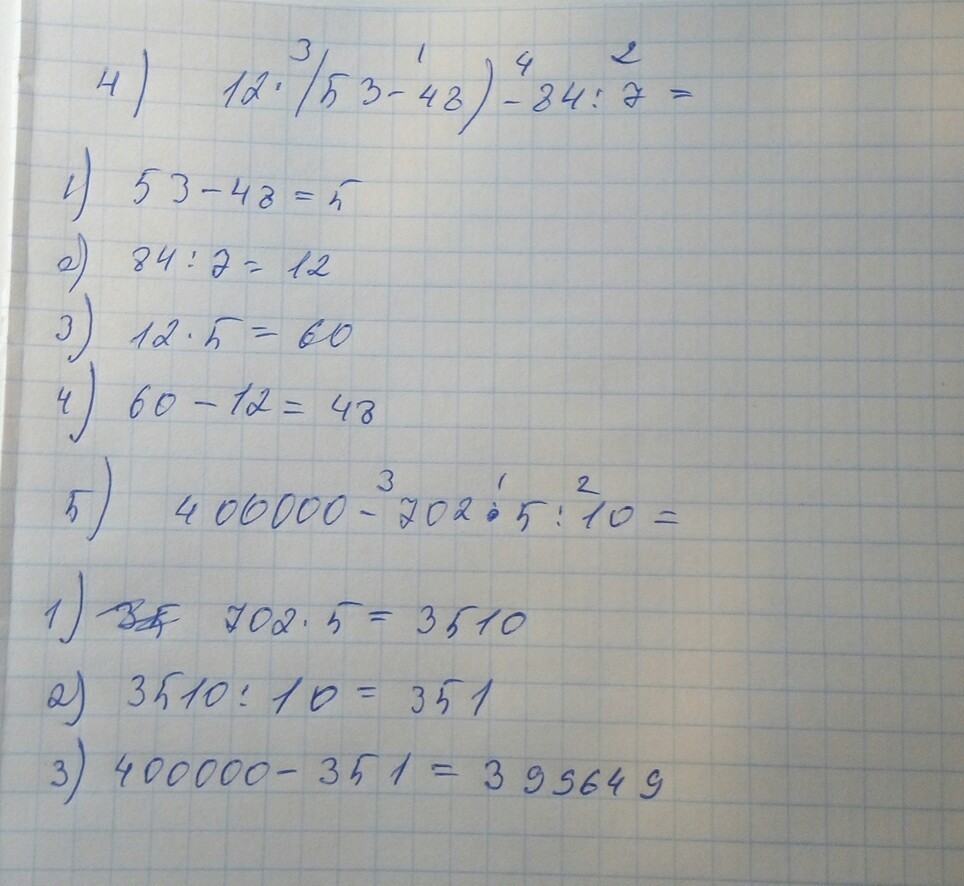 3 1 4 2
4) 12·(53-48)-84:7=
1) 53-48=5
2) 84:7=12
3) 12·5=60
4) 60-12=48
3 1 2
5) 400000-702·5:10=
1) 702·5=3510
2) 3510:10=351
3) 400000-351=399649